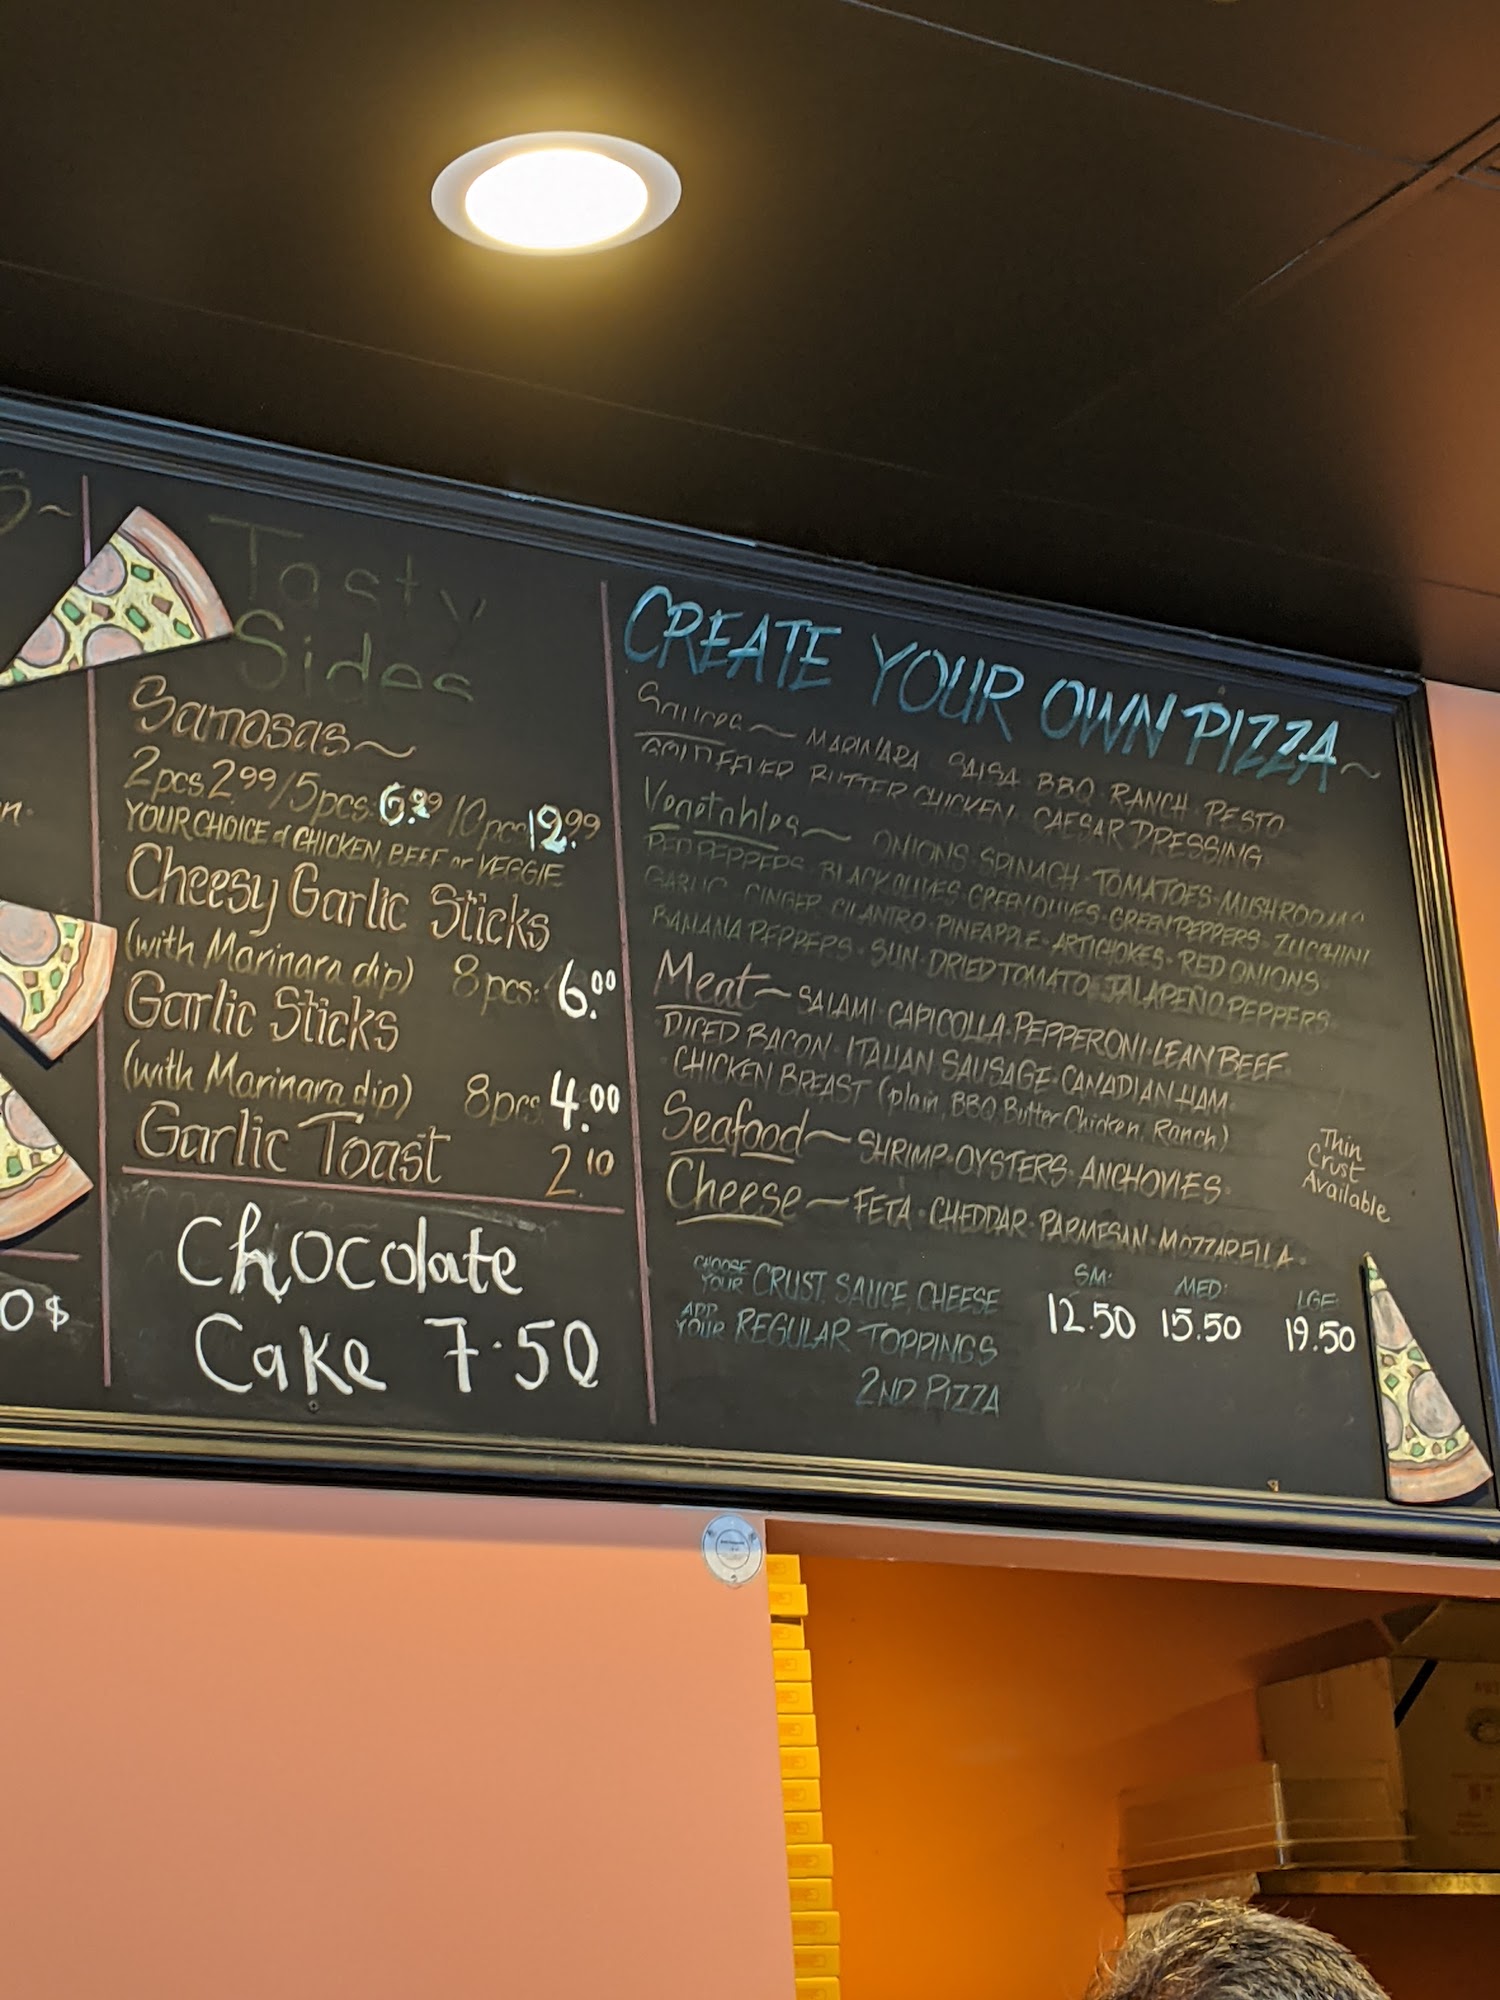 Tasty
Sides
Samosas~
2pcs 2.99/5pcs 6.99/10pcs 12.99
YOUR CHOICE of CHICKEN, BEEF or VEGGIE
Cheesy Garlic Sticks
(with Marinara dip) 8pcs: 6.00
Garlic Sticks
(with Marinara dip) 8pcs 4.00
Garlic Toast 2.10
Chocolate
Cake 7.50
0$
CREATE YOUR OWN PIZZA~
Sauces~ MARINARA SALSA BBQ · RANCH · PESTO
GOLD FEVER BUTTER CHICKEN · CAESAR DRESSING
Vegetables~ ONIONS · SPINACH · TOMATOES · MUSHROOMS
RED PEPPERS · BLACK OLIVES · GREEN OLIVES · GREEN PEPPERS · ZUCCHINI
GARLIC · GINGER · CILANTRO · PINEAPPLE · ARTICHOKES · RED ONIONS ·
BANANA PEPPERS · SUN-DRIED TOMATO · JALAPEÑO PEPPERS ·
Meat~ SALAMI · CAPICOLLA · PEPPERONI · LEAN BEEF ·
DICED BACON · ITALIAN SAUSAGE · CANADIAN HAM ·
· CHICKEN BREAST (plain, BBQ, Butter Chicken, Ranch)
Seafood~ SHRIMP · OYSTERS · ANCHOVIES ·
Cheese~ FETA · CHEDDAR · PARMESAN · MOZZARELLA ·
Thin
Crust
Available
SM: MED: LGE
CHOOSE YOUR CRUST, SAUCE, CHEESE 12.50 15.50 19.50
ADD YOUR REGULAR TOPPINGS
2ND PIZZA